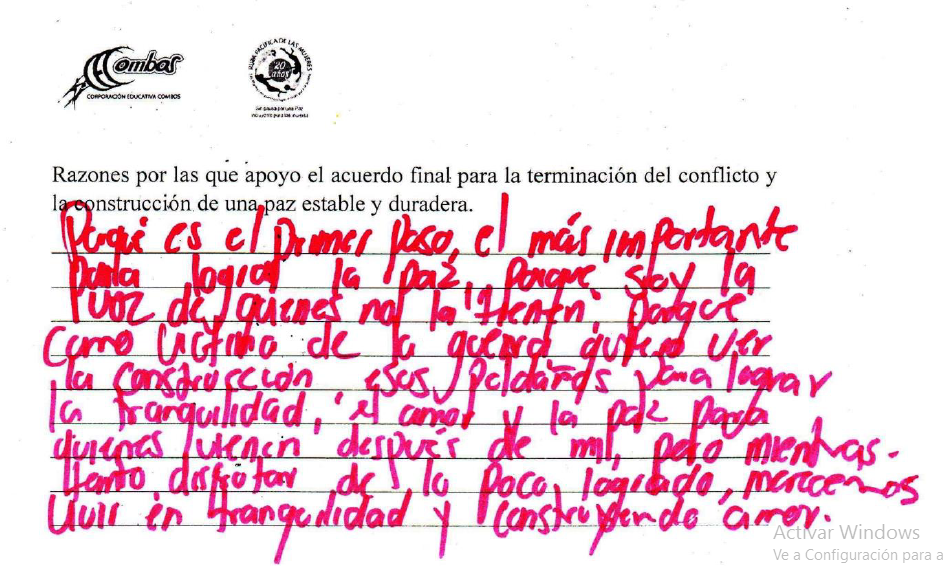 Combos
CORPORACIÓN EDUCATIVA COMBOS
RUTA PACÍFICA DE LAS MUJERES
20
años
Razones por las que apoyo el acuerdo final para la terminación del conflicto y
la construcción de una paz estable y duradera.
Porque es el primer paso, el más importante
para lograr la paz, porque soy la
voz de quienes no la tienen, porque
como victima de la guerra quiero ver
la construcción esos peldaños para lograr
la tranquilidad, el amor y la paz para
quienes vienen después de mi, pero mientras
tanto disfrutar de lo poco logrado, merecemos
vivir en tranquilidad y construyendo amor.
Activar Windows
Ve a Configuración para a